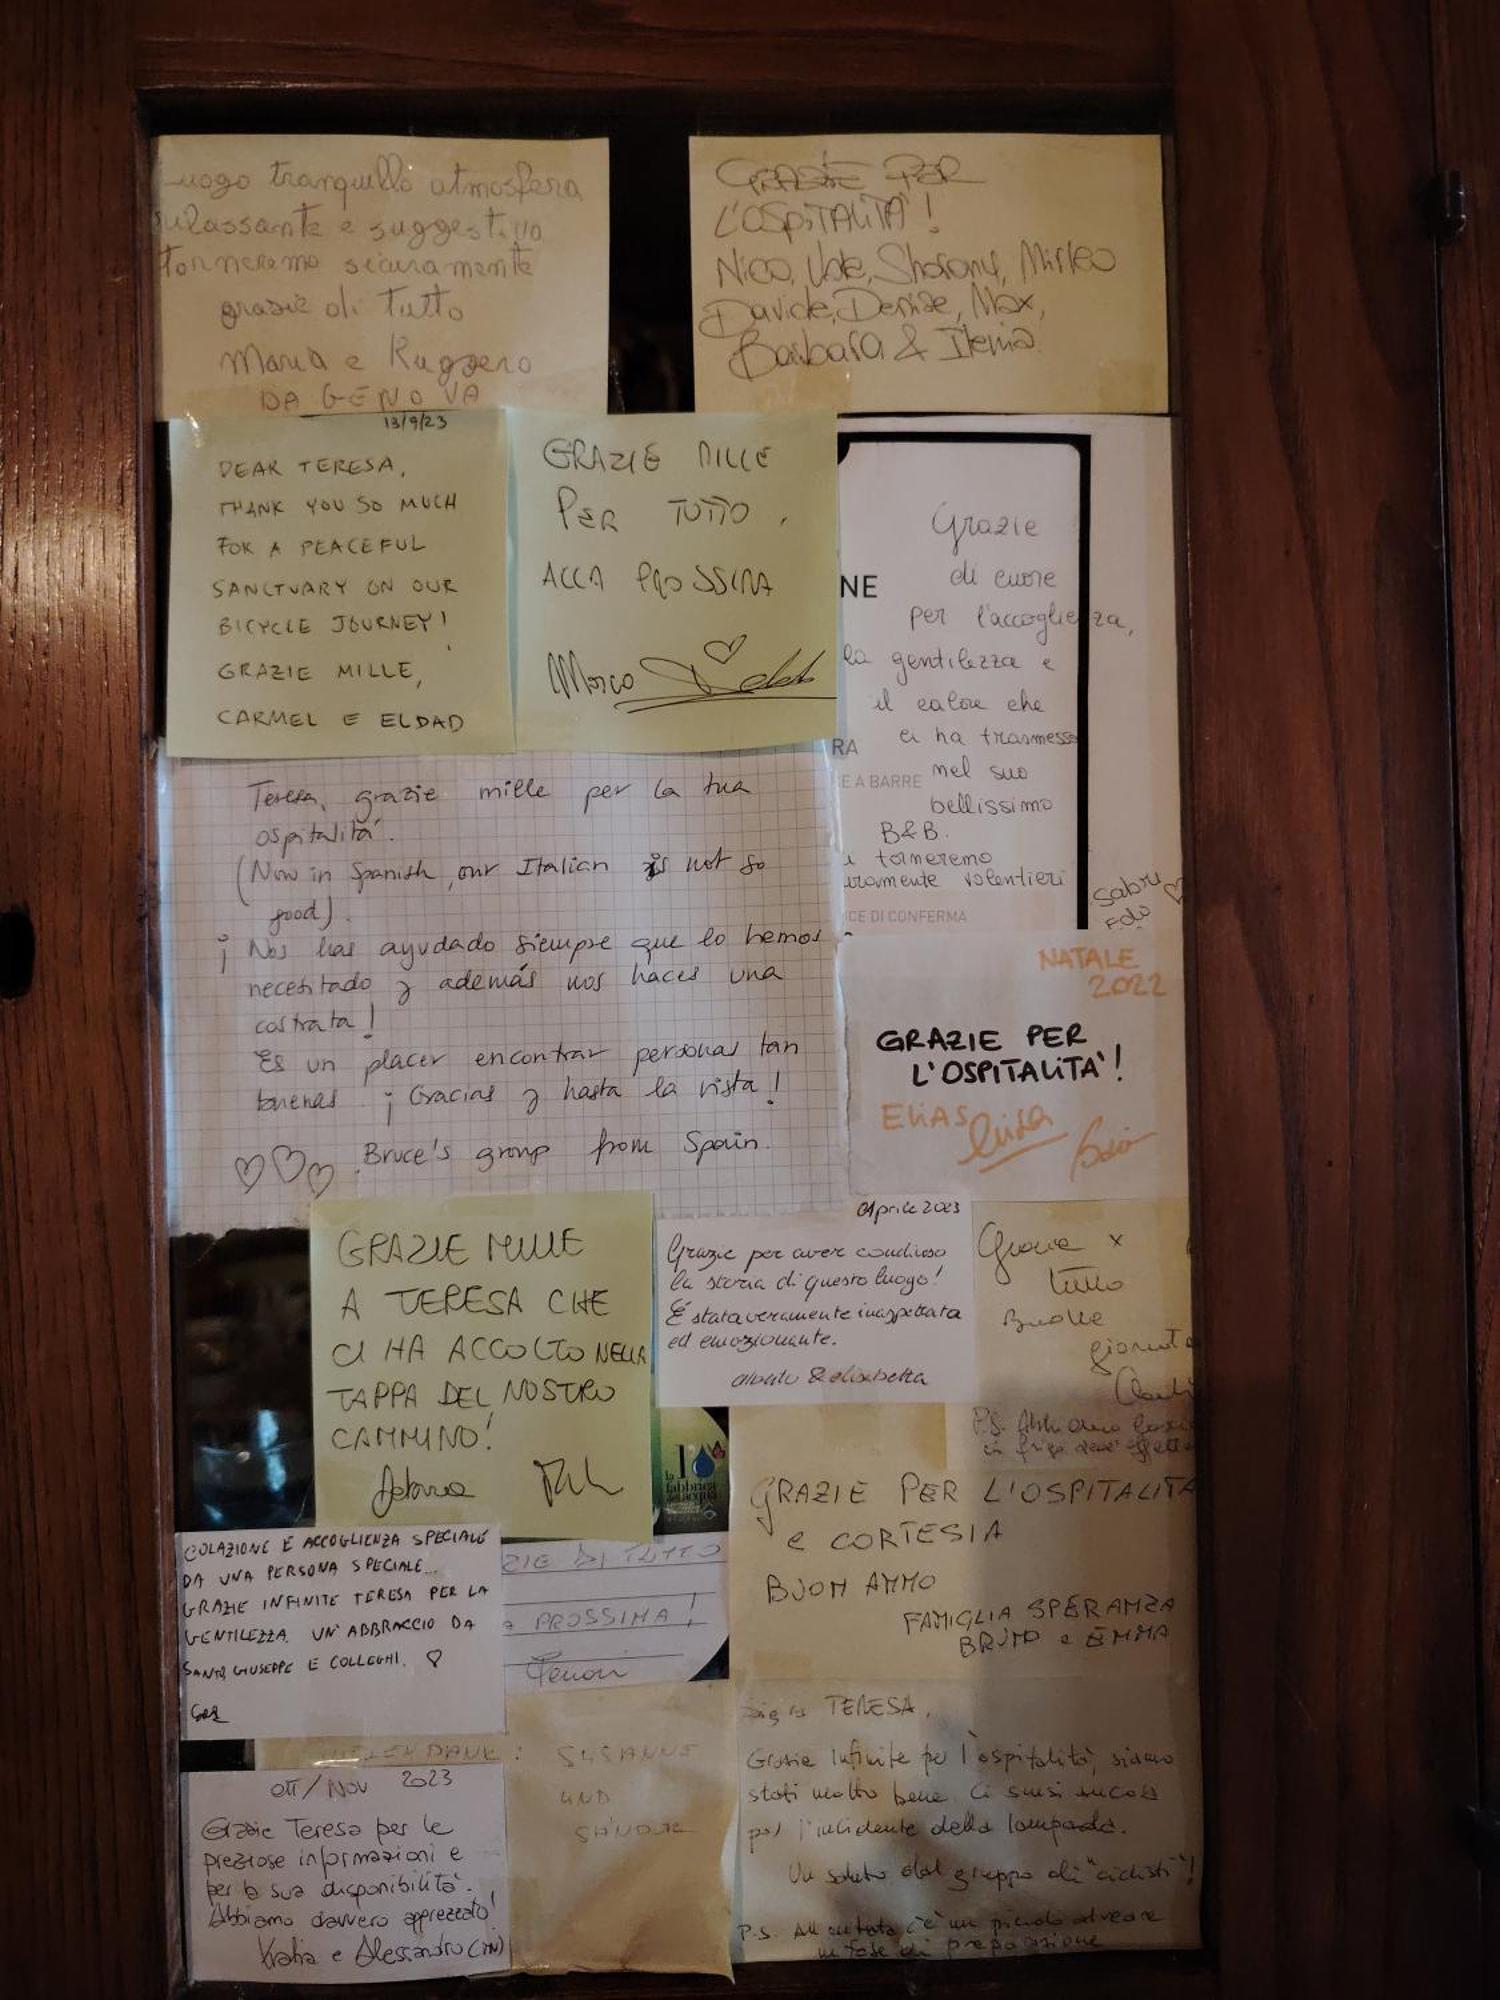 Luogo tranquillo atmosfera
rilassante e suggestiva
torneremo sicuramente
grazie di tutto
Maria e Ruggero
DA GENOVA
GRAZIE PER
L'OSPITALITÀ!
Nico, Sharony, Mirko
Davide, Denise, Max,
Barbara & Ilenia
13/9/23
DEAR TERESA,
THANK YOU SO MUCH
FOR A PEACEFUL
SANCTUARY ON OUR
BICYCLE JOURNEY!
GRAZIE MILLE,
CARMEL E ELDAD
GRAZIE MILLE
PER TUTTO,
ALLA PROSSIMA
Marco
Grazie
di cuore
per l'accoglienza,
la gentilezza e
il calore che
ci ha trasmesso
nel suo
bellissimo
B&B.
torneremo
uramente volentieri
Sabri
NE
RA
E A BARRE
ICE DI CONFERMA
Teresa, grazie mille per la tua
ospitalitá.
(Now in Spanish, our Italian is not so
good).
¡Nos has ayudado siempre que lo hemos
necesitado y además nos haces una
costrata!
Es un placer encontrar personas tan
buenas. ¡Gracias y hasta la vista!
Bruce's group from Spain.
NATALE
2022
GRAZIE PER
L'OSPITALITÀ!
ELIAS
luisa
GRAZIE MILLE
A TERESA CHE
CI HA ACCOLTO NELLA
TAPPA DEL NOSTRO
CAMMINO!
Aprile 2023
Grazie per aver condiviso
la storia di questo luogo!
È stata veramente inaspettata
ed emozionante.
Alberto & elisabetta
Grazie x
tutto
Buone
giornate
P.S.
in frigo
la fabbrica
dell'acqua
GRAZIE PER L'OSPITALITÀ
e CORTESIA
BUON ANNO
FAMIGLIA SPERANZA
BRUNO e EMMA
COLAZIONE E ACCOGLIENZA SPECIALE
DA UNA PERSONA SPECIALE...
GRAZIE INFINITE TERESA PER LA
GENTILEZZA. UN'ABBRACCIO DA
GIUSEPPE E COLLEGHI.
ZIE DI TUTTO
a PROSSIMA!
VIELEN DANK!
SUSANNE
UND
OTT/NOV 2023
Grazie Teresa per le
preziose informazioni e
per la sua disponibilità.
Abbiamo davvero apprezzato!
Katia e Alessandro (MN)
Sig.ra TERESA,
Grazie infinite per l'ospitalità, siamo
stati molto bene. Ci scusi ancora
per l'incidente della lampada.
Un saluto dal gruppo di "ciclisti"!
P.S. All'entrata c'è un piccolo alveare
in fase di preparazione